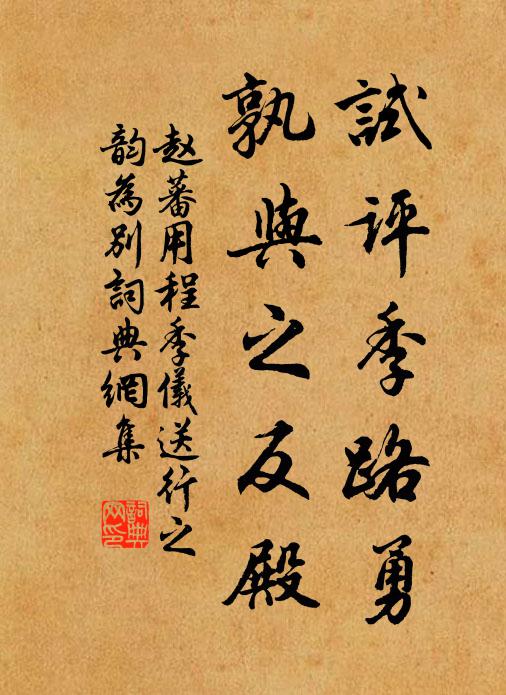 試評季路勇
孰與之反殿
赵蕃用程季儀送行之
韵為別詞典網集
詞典
网印